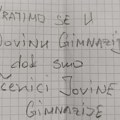 VRATIMO SE U
JOVINU GIMNAZIJU
DOK SMO
UČENICI JOVINE
GIMNAZIJE